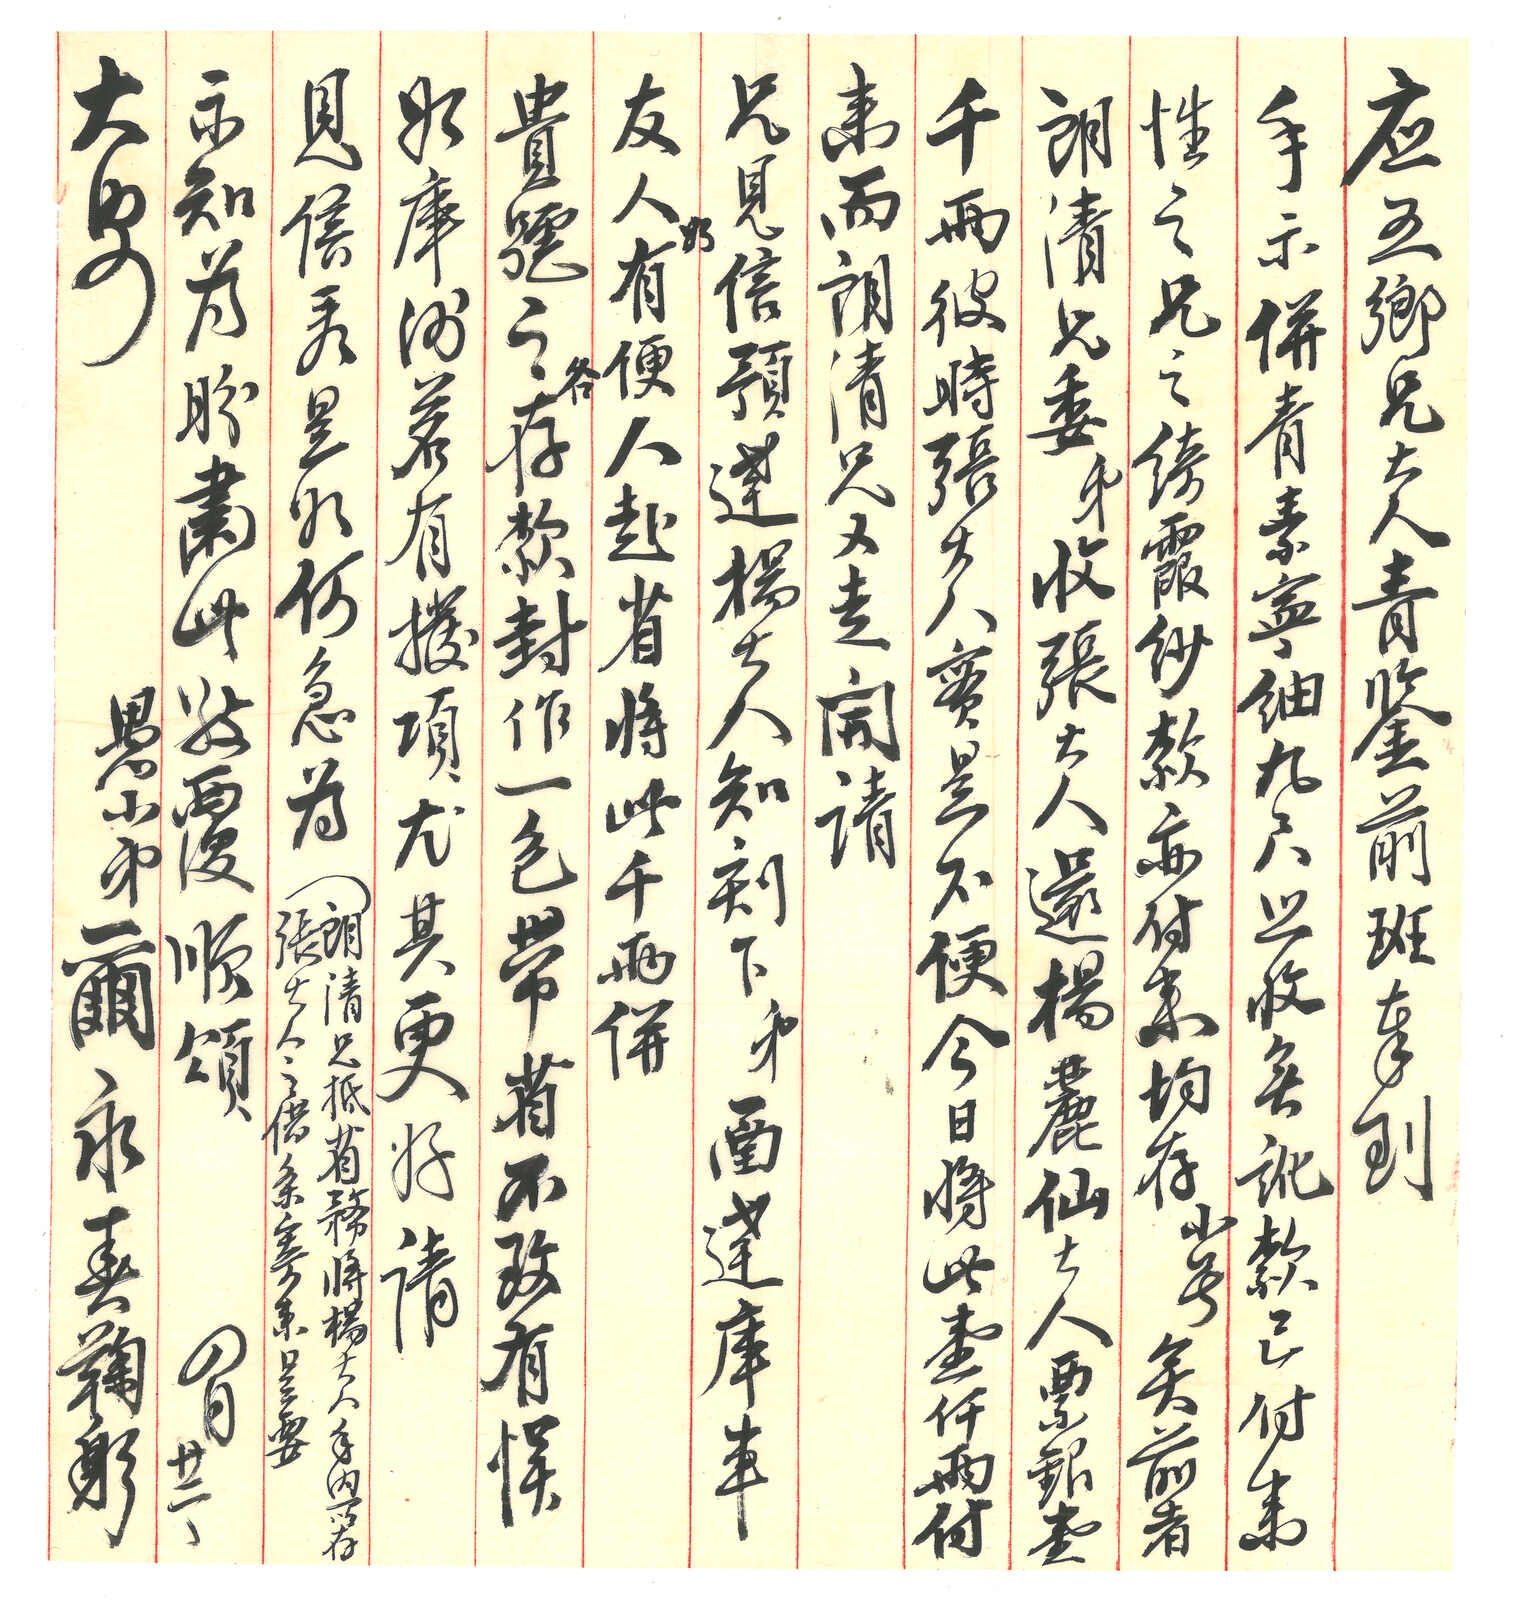 应五鄉兄大人青鑒前班奉到
手示併青素寧紬九尺照收矣訛欵已付來
性之兄之綺霞紗欵亦付來均存小号矣前者
朗清兄委弟收張大人還楊麗仙大人票銀壹
千兩彼時張大人實是不便今日將此壹仟兩付
來而朗清兄又走開請
兄見信預達楊大人知刻下弟函達庫車
友人如有便人赴省將此千兩併
貴號之存各欵封作一色帶省不致有悞
如庫洲若有撥項尤其更好請
見信看是如何急為(朗清兄抵省務將楊大人手內所存
張大人之借条寄來是要
示知為盼肅此敬覆順頌
大安
四月廿二
愚小弟爾永春鞠躬